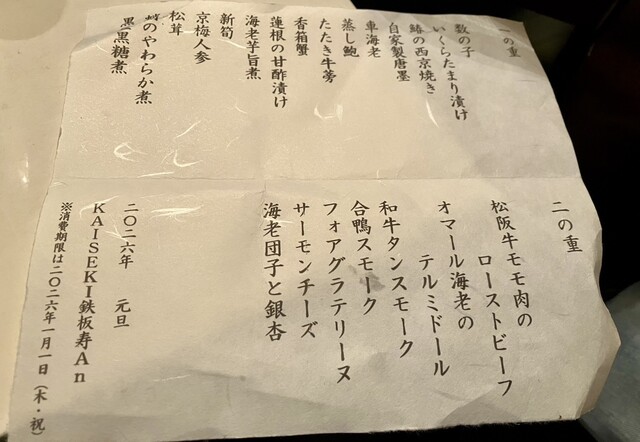 一の重
数の子
いくらたまり漬け
鰆の西京焼き
自家製唐墨
車海老
蒸し鮑
たたき牛蒡
香箱蟹
蓮根の甘酢漬け
海老芋旨煮
新筍
京梅人参
松茸
のやわらか煮
黒糖煮
二の重
松阪牛モモ肉の
ローストビーフ
オマール海老の
テルミドール
和牛タンスモーク
合鴨スモーク
フォアグラテリーヌ
サーモンチーズ
海老団子と銀杏
二〇二六年 元旦
KAISEKI鉄板寿An
※消費期限は二〇二六年一月一日(木・祝)